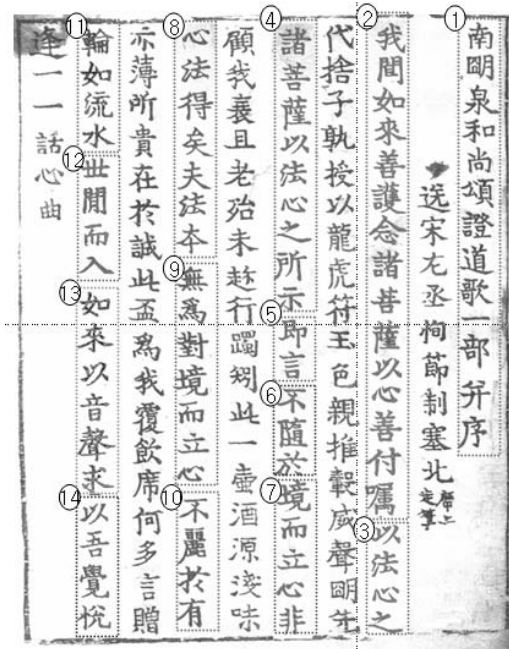 ①南明泉和尚頌證道歌一部并序
送宋左丞恂節制塞北
②我聞如來善護念諸菩薩以心善付囑③以法心之
代捨子孰授以龍虎符玉色親推轂威聲明先
④諸菩薩以法心之所示⑤即言⑥不隨於⑦境而立心非
顧我衰且老殆未趂行躅矧此一壷酒源淺味
⑧心法得矣夫法本⑨無爲對境而立心⑩不麗於有
亦薄所貴在於誠此盃爲我覆飲席何多言贈
⑪輪如流水⑫世間而入⑬如來以音聲求⑭以吾覺悅
逢一一話心曲